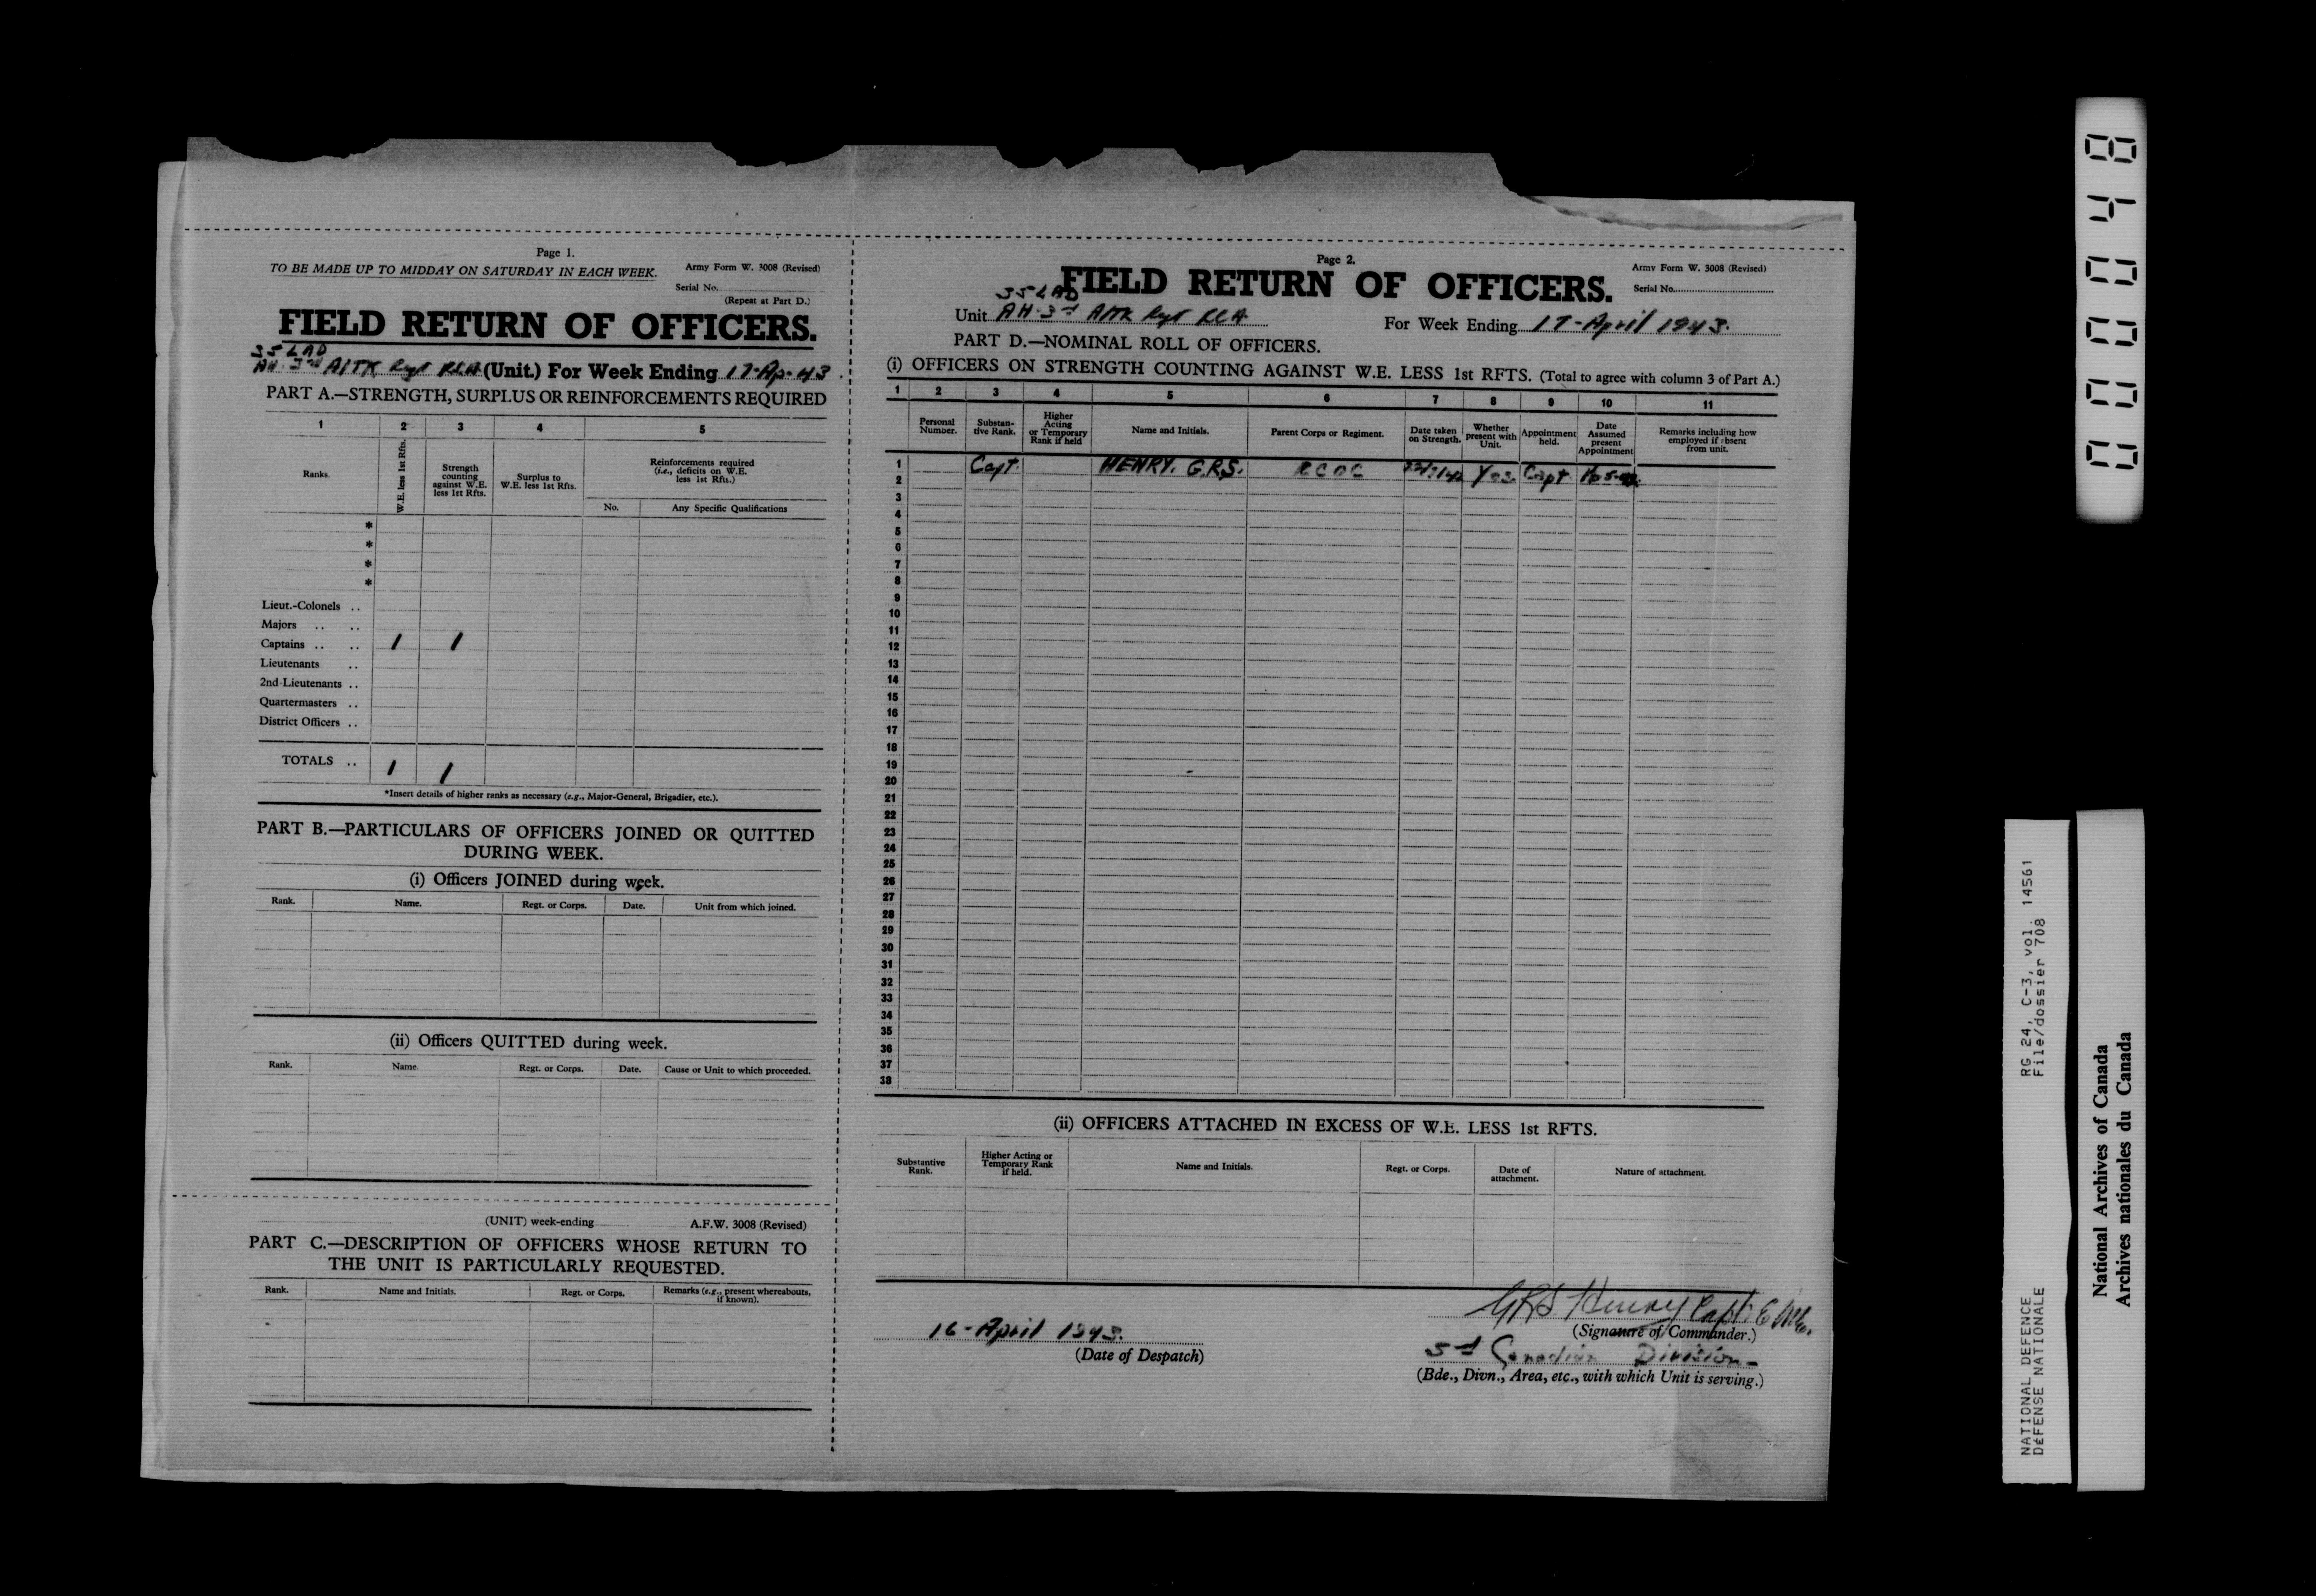 Page 1.
TO BE MADE UP TO MIDDAY ON SATURDAY IN EACH WEEK.
Army Form W. 3008 (Revised)
Serial No.
(Repeat at Part D.)
FIELD RETURN OF OFFICERS.
35 LAD
Att. 3rd A/TK Regt RCA (Unit.) For Week Ending 17-Ap-43.
PART A.—STRENGTH, SURPLUS OR REINFORCEMENTS REQUIRED
1 2 3 4 5
Ranks.
W.E. less 1st Rfts.
Strength counting against W.E. less 1st Rfts.
Surplus to W.E. less 1st Rfts.
Reinforcements required (i.e., deficits on W.E. less 1st Rfts.)
No.
Any Specific Qualifications
*
*
*
*
Lieut.-Colonels ..
Majors .. ..
Captains .. .. 1 1
Lieutenants ..
2nd Lieutenants ..
Quartermasters ..
District Officers ..
TOTALS .. 1 1
*Insert details of higher ranks as necessary (e.g., Major-General, Brigadier, etc.).
PART B.—PARTICULARS OF OFFICERS JOINED OR QUITTED
DURING WEEK.
(i) Officers JOINED during week.
Rank. Name. Regt. or Corps. Date. Unit from which joined.
(ii) Officers QUITTED during week.
Rank. Name. Regt. or Corps. Date. Cause or Unit to which proceeded.
(UNIT) week-ending A.F.W. 3008 (Revised)
PART C.—DESCRIPTION OF OFFICERS WHOSE RETURN TO
THE UNIT IS PARTICULARLY REQUESTED.
Rank. Name and Initials. Regt. or Corps. Remarks (e.g., present whereabouts, if known).
Page 2.
Army Form W. 3008 (Revised)
Serial No.
FIELD RETURN OF OFFICERS.
35 LAD
Unit Att. 3rd A/TK Regt RCA
For Week Ending 17-April 1943.
PART D.—NOMINAL ROLL OF OFFICERS.
(i) OFFICERS ON STRENGTH COUNTING AGAINST W.E. LESS 1st RFTS. (Total to agree with column 3 of Part A.)
1 2 3 4 5 6 7 8 9 10 11
Personal Number.
Substantive Rank.
Higher Acting or Temporary Rank if held
Name and Initials.
Parent Corps or Regiment.
Date taken on Strength.
Whether present with Unit.
Appointment held.
Date Assumed present Appointment
Remarks including how employed if absent from unit.
1 Capt. HENRY. G.R.S. RCOC Yes Capt
2
3
4
5
6
7
8
9
10
11
12
13
14
15
16
17
18
19
20
21
22
23
24
25
26
27
28
29
30
31
32
33
34
35
36
37
38
(ii) OFFICERS ATTACHED IN EXCESS OF W.E. LESS 1st RFTS.
Substantive Rank.
Higher Acting or Temporary Rank if held.
Name and Initials.
Regt. or Corps.
Date of attachment.
Nature of attachment.
GRS Henry Capt.
(Signature of Commander.)
16-April 1943.
(Date of Despatch)
3rd Canadian Division-
(Bde., Divn., Area, etc., with which Unit is serving.)
00048
RG 24, C-3, vol. 14561
File/dossier 708
NATIONAL DEFENCE
DÉFENSE NATIONALE
National Archives of Canada
Archives nationales du Canada